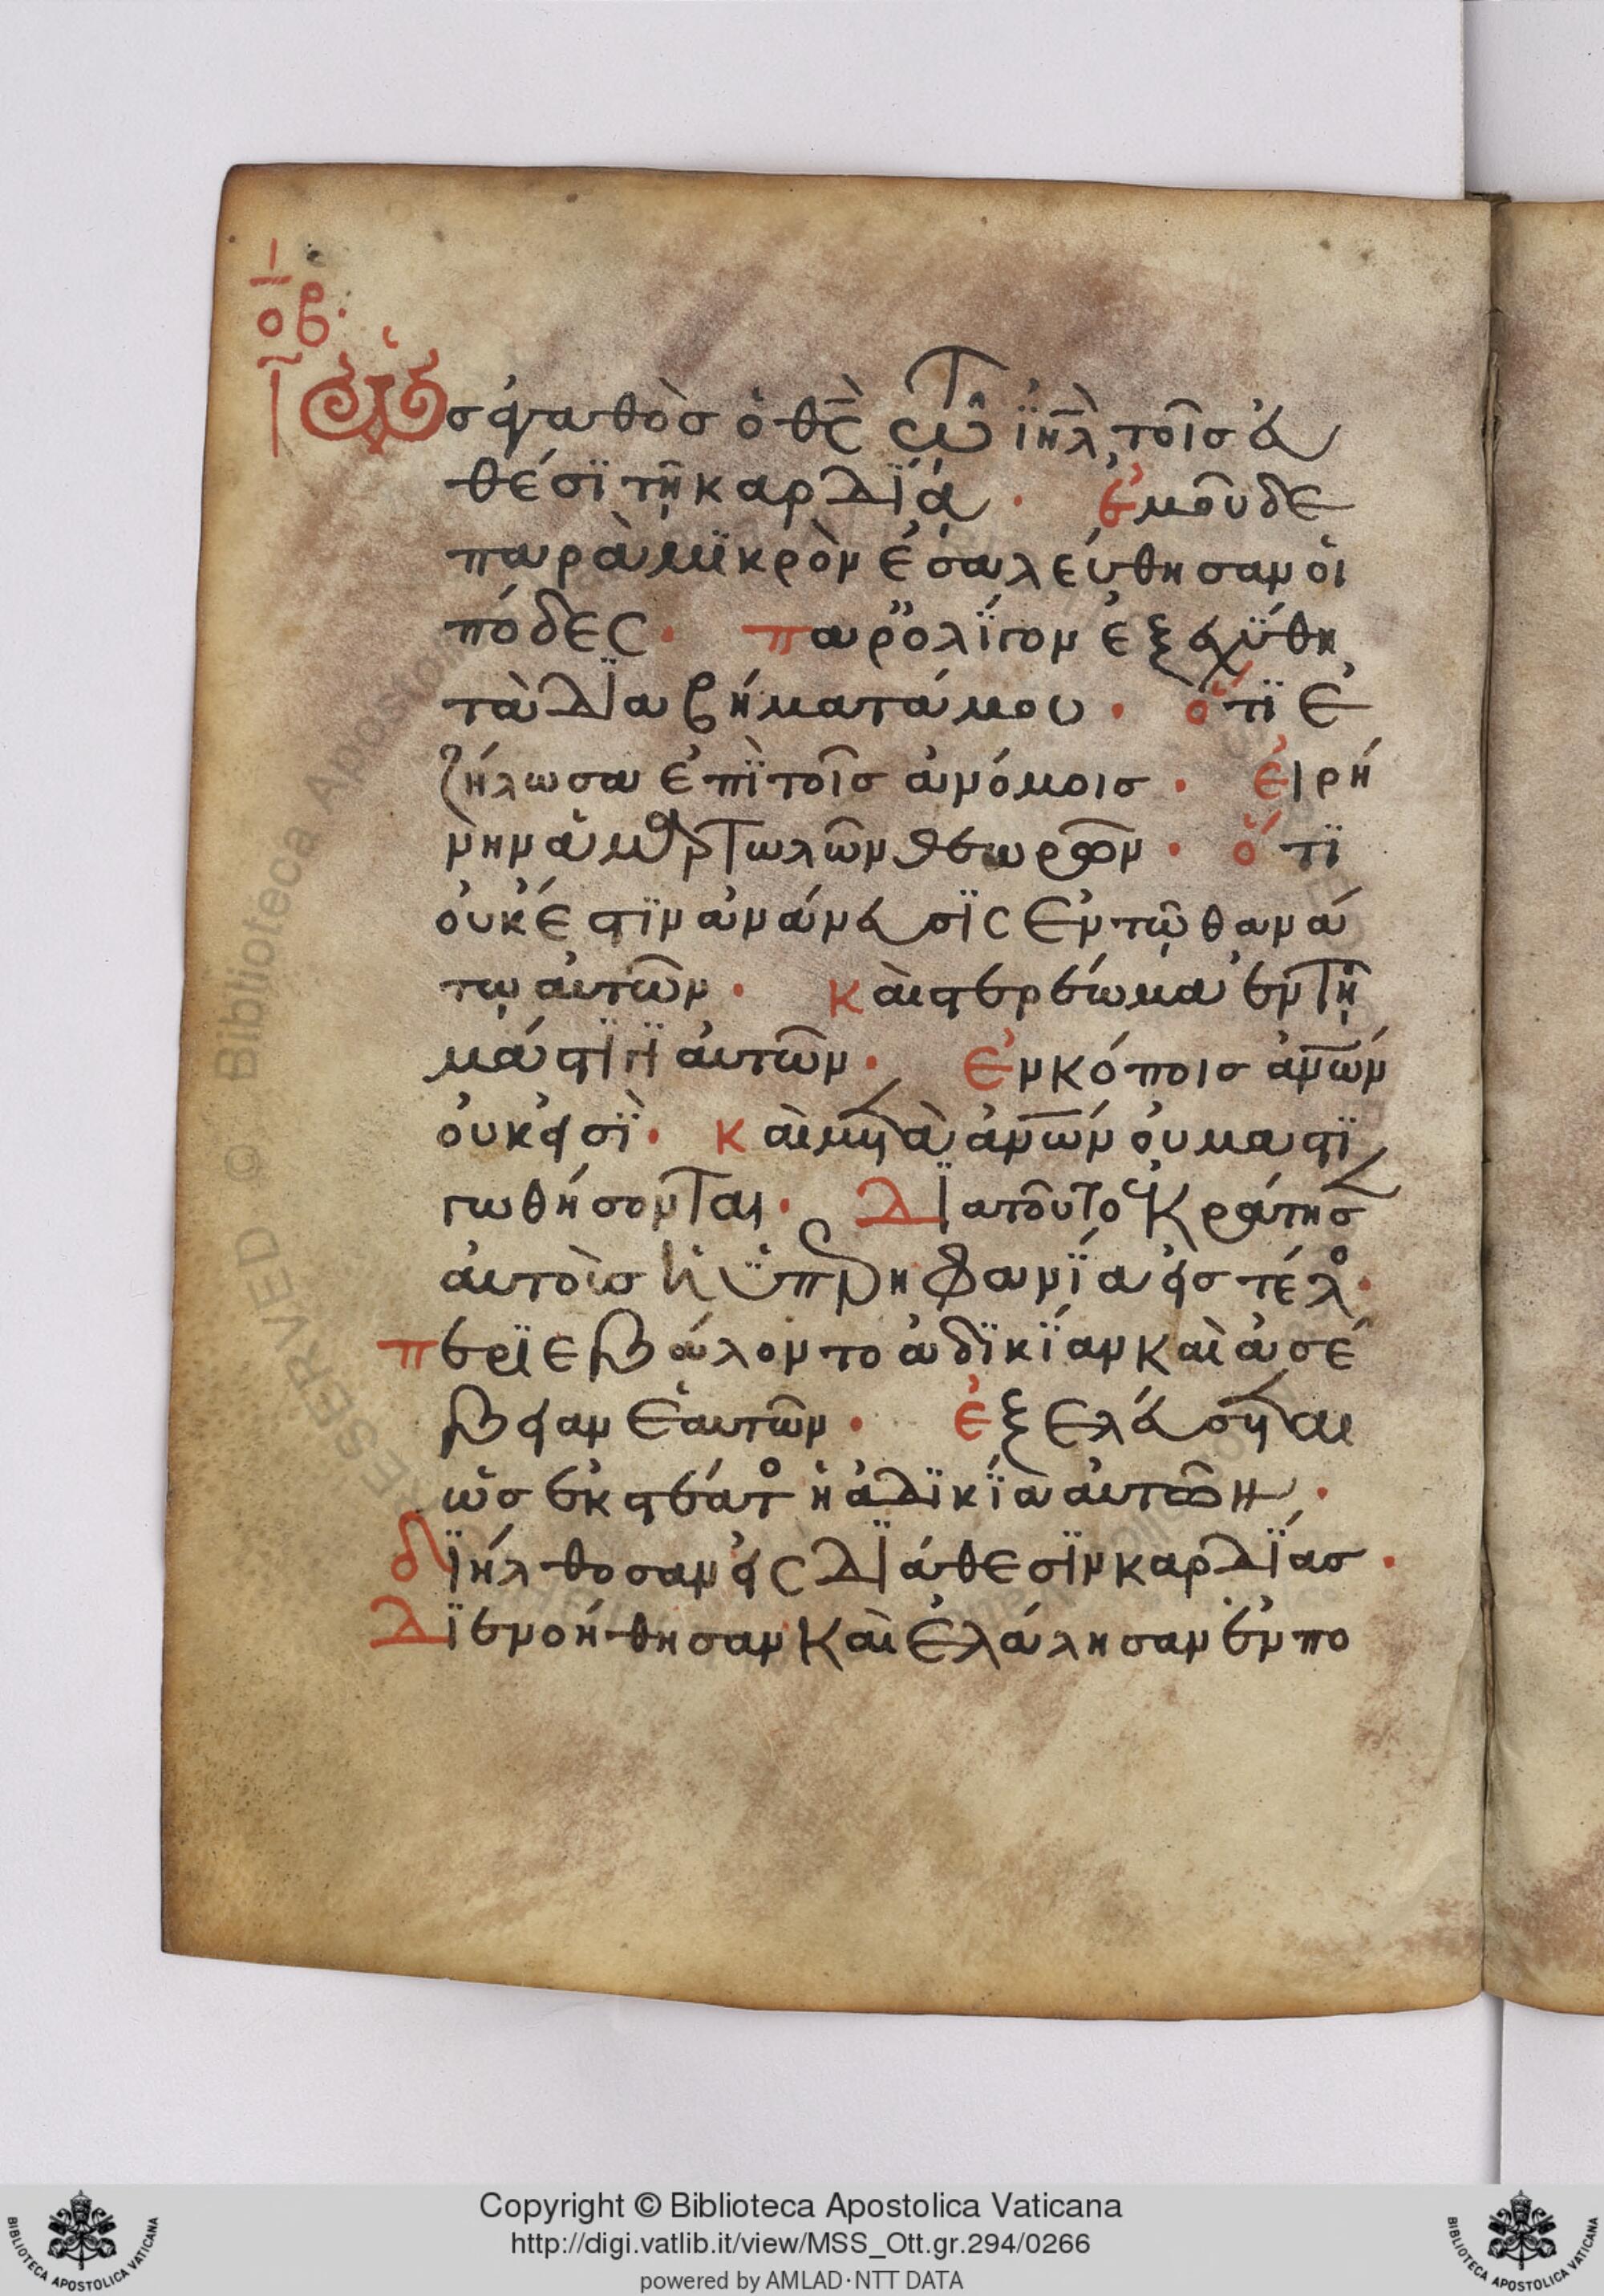 ι
οβ·
Ὡς ἀγαθὸς ὁ θς̅ τῶ ιηλ̅ τοῖς εὐ
θέσϊ τῆ καρδΐᾳ · ἐμοῦ δὲ
παρὰ μϊκρὸν ἐσαλεύθησαν οἱ
πόδες · παρ' ὀλΐγον ἐξεχΰθη
τὰ δϊαβήματά μου · ὅτϊ ἐ
ζήλωσα ἐπῒ τοῖς ἀνόμοις · εἰρή
νην ἁμαρτωλῶν θεωρῶν · ὅτϊ
οὐκ ἔστϊν ἀνάνευσϊς ἐν τῶ θανά
τω αὐτῶν · καὶ στερέωμα ἐν τῆ
μάστϊγϊ αὐτῶν · ἐν κόποις ἀν̅ων
οὐκ εἰσῒ · καὶ μετὰ ἀν̅ων οὐ μαστϊ
γωθήσονται · δϊατοῦτο ἐκράτησεν
αὐτοὺς ἡ ὑπερηφανΐα εἰς τέλος ·
περϊεβάλοντο ἀδϊκΐαν καὶ ἀσέ
βειαν ἑαυτῶν · ἐξελεύσεται
ὡς ἐκ στέατος ἡ ἀδϊκΐα αὐτῶν ·
δϊήλθοσαν εἰς δϊάθεσϊν καρδΐας ·
δϊενοήθησαν καὶ ἐλάλησαν ἐν πο
RESERVED © Biblioteca Apostolica
Copyright © Biblioteca Apostolica Vaticana
http://digi.vatlib.it/view/MSS_Ott.gr.294/0266
powered by AMLAD·NTT DATA
BIBLIOTECA APOSTOLICA VATICANA
BIBLIOTECA APOSTOLICA VATICANA